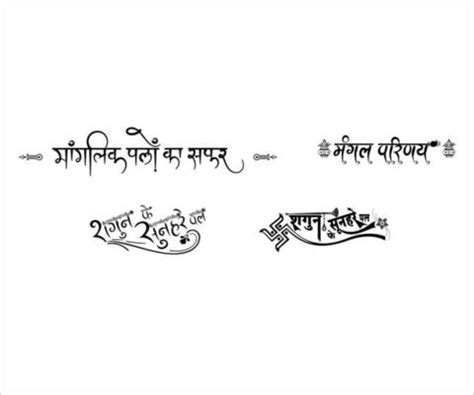 मांगलिक पलों का सफर
मंगल परिणय
शगुन के सुनहरे पल
शगुन के सुनहरे पल